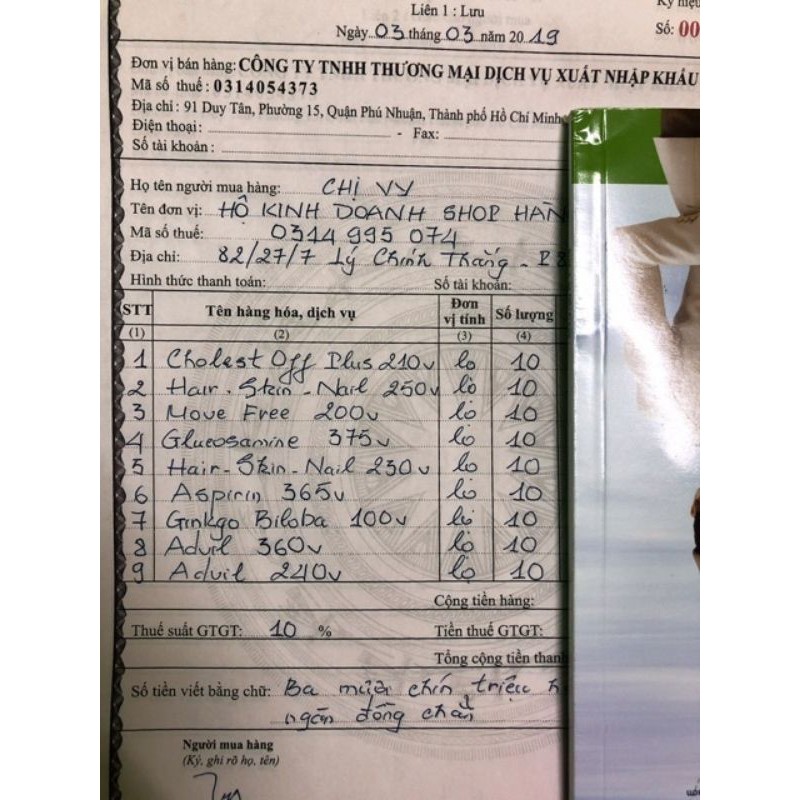 Liên 1 : Lưu
Ký hiệu
Ngày 03 tháng 03 năm 2019
Số: 00
Đơn vị bán hàng: CÔNG TY TNHH THƯƠNG MẠI DỊCH VỤ XUẤT NHẬP KHẨU
Mã số thuế: 0314054373
Địa chỉ : 91 Duy Tân, Phường 15, Quận Phú Nhuận, Thành phố Hồ Chí Minh
Điện thoại: - Fax:
Số tài khoản :
Họ tên người mua hàng: CHỊ VY
Tên đơn vị: HỘ KINH DOANH SHOP HÀN
Mã số thuế: 0314 995 074
Địa chỉ: 82/27/7 Lý Chính Thắng - P 8
Hình thức thanh toán: Số tài khoản:
STT Tên hàng hóa, dịch vụ Đơn vị tính Số lượng
(1) (2) (3) (4)
1 Cholest Off Plus 210v lọ 10
2 Hair. Skin. Nail 250v lọ 10
3 Move Free 200v lọ 10
4 Glucosamine 375v lọ 10
5 Hair-Skin-Nail 230v lọ 10
6 Aspirin 365v lọ 10
7 Ginkgo Biloba 100v lọ 10
8 Advil 360v lọ 10
9 Advil 240v lọ 10
Cộng tiền hàng:
Thuế suất GTGT: 10 % Tiền thuế GTGT:
Tổng cộng tiền thanh
Số tiền viết bằng chữ: Ba mươi chín triệu
ngàn đồng chẵn
Người mua hàng
(Ký, ghi rõ họ, tên)